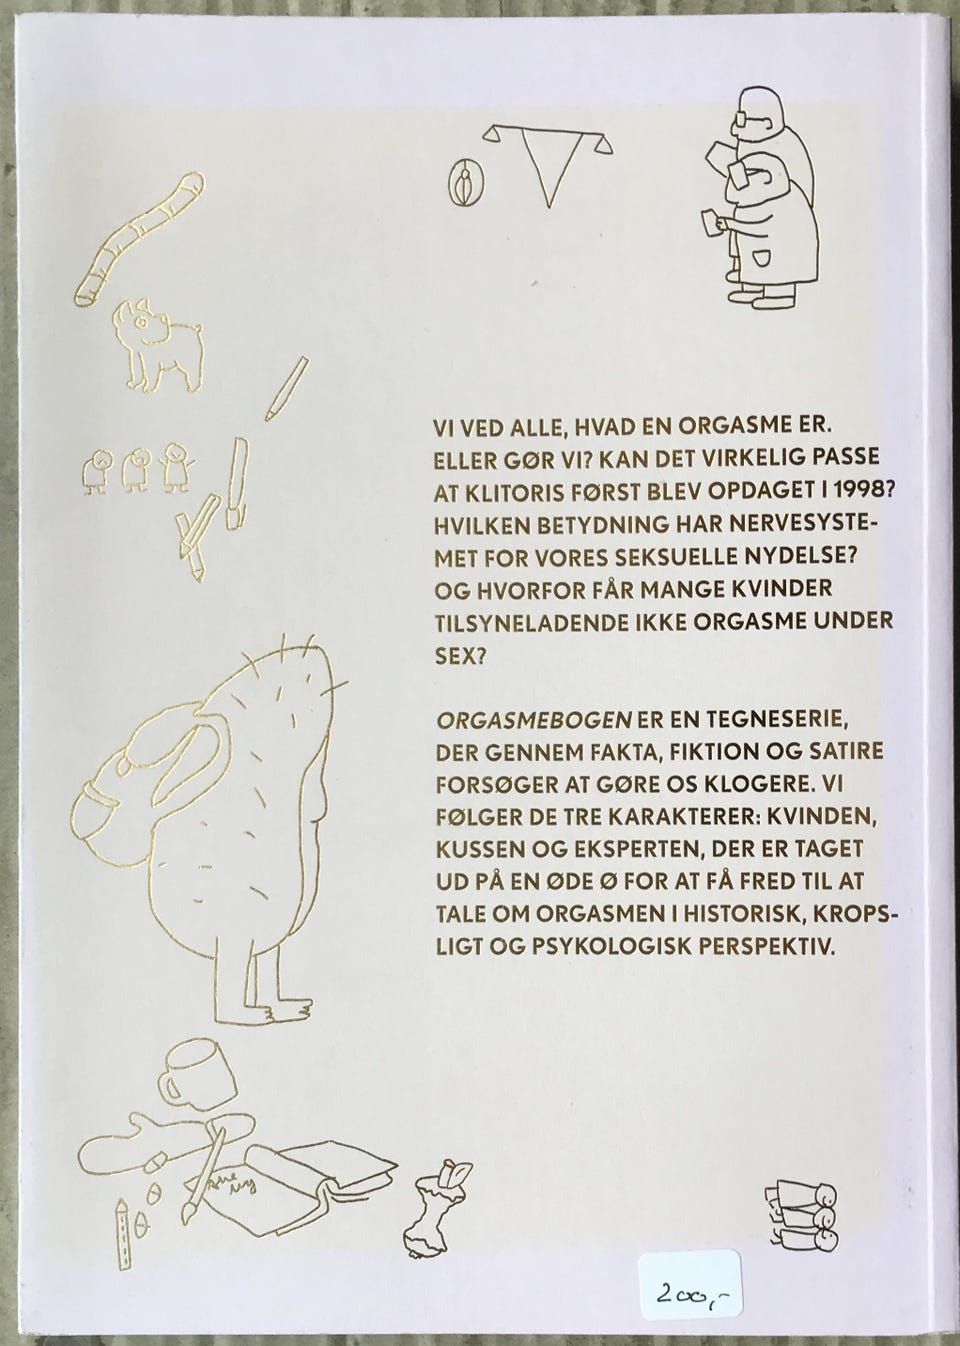 VI VED ALLE, HVAD EN ORGASME ER.
ELLER GØR VI? KAN DET VIRKELIG PASSE
AT KLITORIS FØRST BLEV OPDAGET I 1998?
HVILKEN BETYDNING HAR NERVESYSTE-
MET FOR VORES SEKSUELLE NYDELSE?
OG HVORFOR FÅR MANGE KVINDER
TILSYNELADENDE IKKE ORGASME UNDER
SEX?
ORGASMEBOGEN ER EN TEGNESERIE,
DER GENNEM FAKTA, FIKTION OG SATIRE
FORSØGER AT GØRE OS KLOGERE. VI
FØLGER DE TRE KARAKTERER: KVINDEN,
KUSSEN OG EKSPERTEN, DER ER TAGET
UD PÅ EN ØDE Ø FOR AT FÅ FRED TIL AT
TALE OM ORGASMEN I HISTORISK, KROPS-
LIGT OG PSYKOLOGISK PERSPEKTIV.
200,-